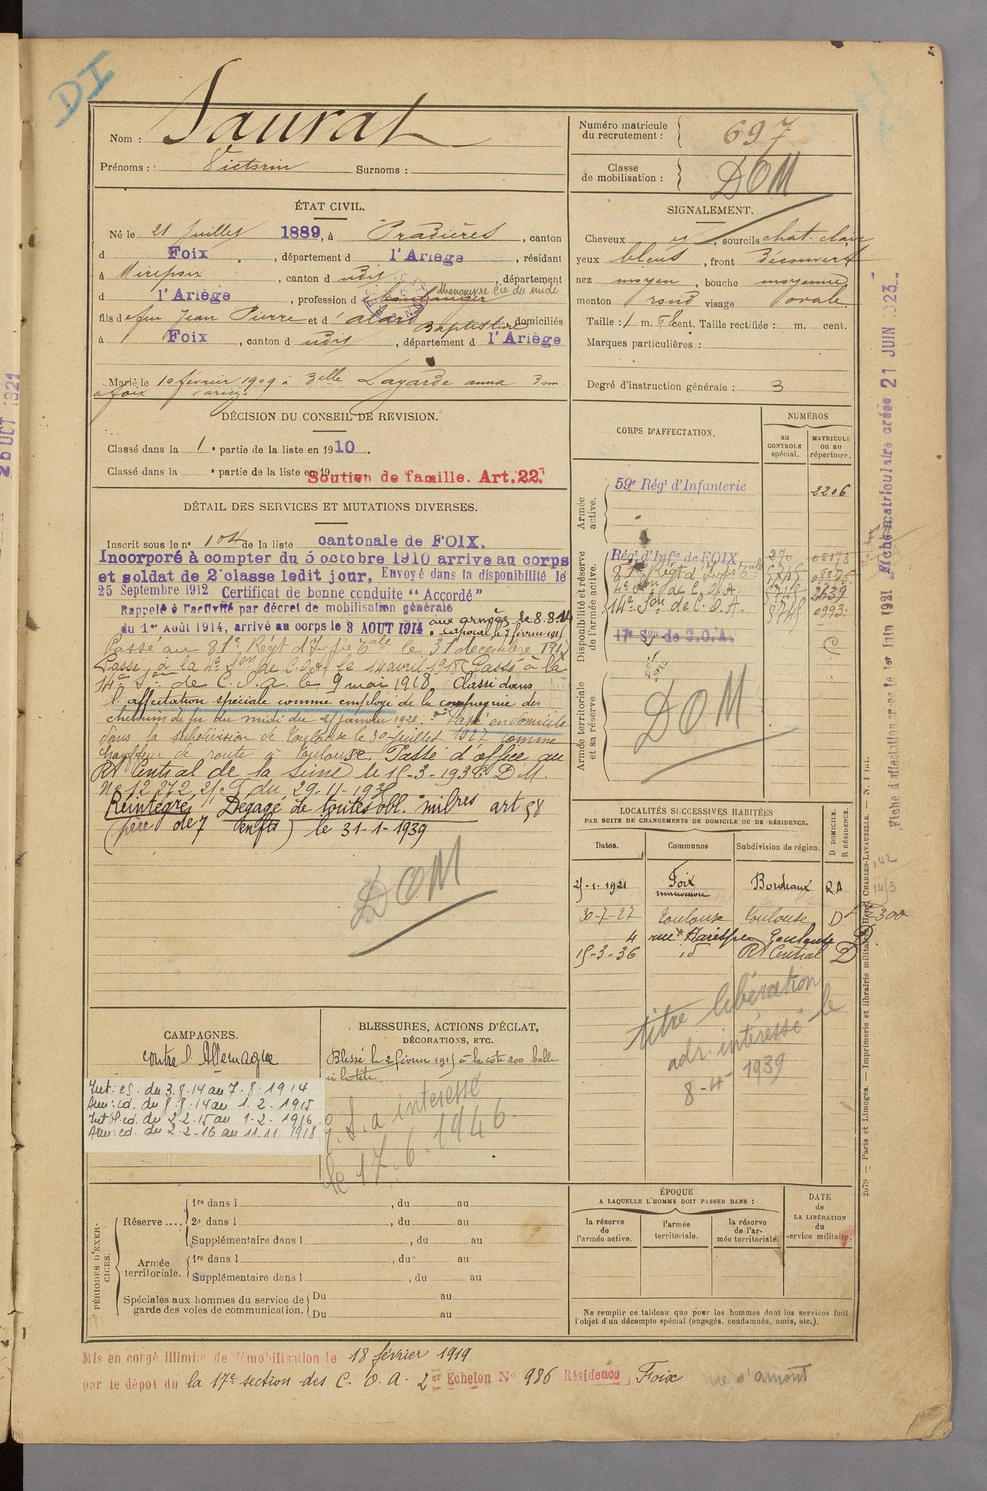 DI
Nom : Saurat
Prénoms : Victorin Surnoms :
Numéro matricule du recrutement : 697
Classe de mobilisation : DOM
ÉTAT CIVIL.
Né le 21 Juillet 1889, à Pradières, canton
d Foix, département d l'Ariège, résidant
à Mirepoix, canton d udit, département
d l'Ariège, profession d boulanger Manœuvre Cie du midi
fils de feu Jean Pierre et d' Alard Baptistine domiciliés
à Foix, canton d udit, département d l'Ariège
Marié le 10 février 1909 à Delle Lagarde Anna Dom
à Foix Ariège
DÉCISION DU CONSEIL DE REVISION.
Classé dans la 1e partie de la liste en 1910.
Classé dans la e partie de la liste en 19
Soutien de famille. Art. 22.
DÉTAIL DES SERVICES ET MUTATIONS DIVERSES.
Inscrit sous le no 104 de la liste cantonale de FOIX.
Incorporé à compter du 5 octobre 1910 arrive au corps
et soldat de 2e classe ledit jour. Envoyé dans la disponibilité le
25 Septembre 1912 Certificat de bonne conduite "Accordé"
Rappelé à l'activité par décret de mobilisation générale
du 1er Août 1914, arrivé au corps le 3 AOUT 1914 aux armées le 8.8.14
Caporal le 7 février 1915
Passé au 81e Régt d'Infie le 31 décembre 191
Passé à la 4e Son de C.O.A. le 14 avril 1918 Passé à la
14e Son de C.O.A. le 9 mai 1918, Classé dans
l'affectation spéciale comme employé de la compagnie des
chemins de fer du midi du 25 janvier 1921. Passé en domicile
dans la subdivision de Toulouse le 30 juillet 1927 comme
chauffeur de route à Toulouse. Passé d'office au
Rt Central de la Seine le 15-3-1936 D.M.
No 12.272, 2/ du 29-11-1935
Réintégré Dégagé de toutes obl. milres art 58
(père de 7 enfts) le 31-1-1939
DOM
SIGNALEMENT.
Cheveux et, sourcils chat. clair
yeux bleus, front découvert
nez moyen, bouche moyenne
menton rond visage ovale
Taille : 1 m. 68 cent. Taille rectifiée : m. cent.
Marques particulières :
Degré d'instruction générale : 3
CORPS D'AFFECTATION.
NUMÉROS
AU CONTROLE spécial.
MATRICULE OU AU répertoire.
Armée active.
59e Régt d'Infanterie 2206
Disponibilité et réserve de l'armée active.
Régt d'Infie de FOIX 270
4e Son de C.O.A. 2639
14e Son de C.O.A.
17e Son de C.O.A.
Armée territoriale et sa réserve
DOM
LOCALITÉS SUCCESSIVES HABITÉES
PAR SUITE DE CHANGEMENTS DE DOMICILE OU DE RÉSIDENCE.
Dates. Communes Subdivision de région. D DOMICILE. R RÉSIDENCE.
25-1-1921 Foix Bordeaux RA
30-7-27 Toulouse Toulouse D
4 rue Toulouse D
15-3-36 id Rt Central D
titre libération
adr. intéressé le
8-4-1939
CAMPAGNES.
contre l'Allemagne
Int: es: du 3.8.14 au 7.8.1914
Arm: ed. du 8.8.14 au 1.2.1915
Int bl. ed. du 2.2.15 au 1.2.1916
Arm: ed. du 2.2.16 au 11.11.1918
BLESSURES, ACTIONS D'ÉCLAT, DÉCORATIONS, ETC.
Blessé le 2 février 1915 à la côte 200 balle
à la tête.
intéressé
le 17.6.1946
PÉRIODES D'EXERCICES.
Réserve....
1re dans l , du au
2e dans l , du au
Supplémentaire dans l , du au
Armée territoriale.
1re dans l , du au
Supplémentaire dans l , du au
Spéciales aux hommes du service de garde des voies de communication.
Du au
Du au
ÉPOQUE
A LAQUELLE L'HOMME DOIT PASSER DANS :
la réserve de l'armée active.
l'armée territoriale.
la réserve de l'armée territoriale.
DATE DE LA LIBÉRATION du service militaire.
Ne remplir ce tableau que pour les hommes dont les services font
l'objet d'un décompte spécial (engagés, condamnés, omis, etc.).
Mis en congé illimité de démobilisation le 18 février 1919
par le dépot du la 17e section des C.O.A. 2er Echelon No 986 Résidence, Foix rue d'amont
Fiche d'affectation créée le 1er Juin 1921 Fiche matriculaire créée 21 JUIN 1923
Paris et Limoges. — Imprimerie et librairie militaires Henri CHARLES-LAVAUZELLE.